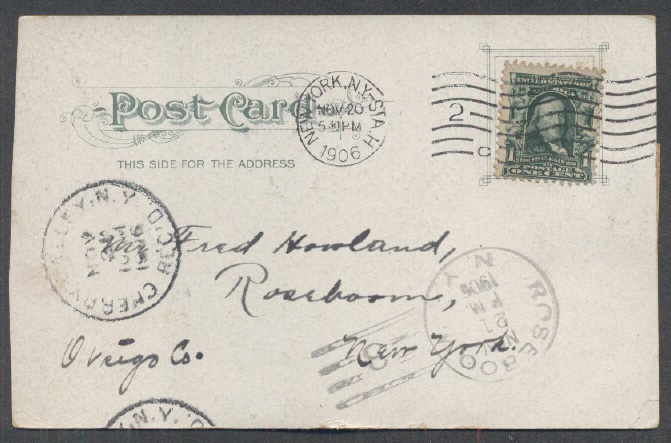 Post Card
THIS SIDE FOR THE ADDRESS
NEW YORK, N.Y. STA. H
NOV 20
5 30 PM
1906
2
C
UNITED STATES
1 POSTAGE 1
ONE CENT
CHERRY VALLEY, N.Y.
REC'D.
NOV
Mr Fred Howland,
Roseboom,
Otsego Co.
New York.
ROSEBOO N.Y.
NOV
21
PM
1906
N.Y.